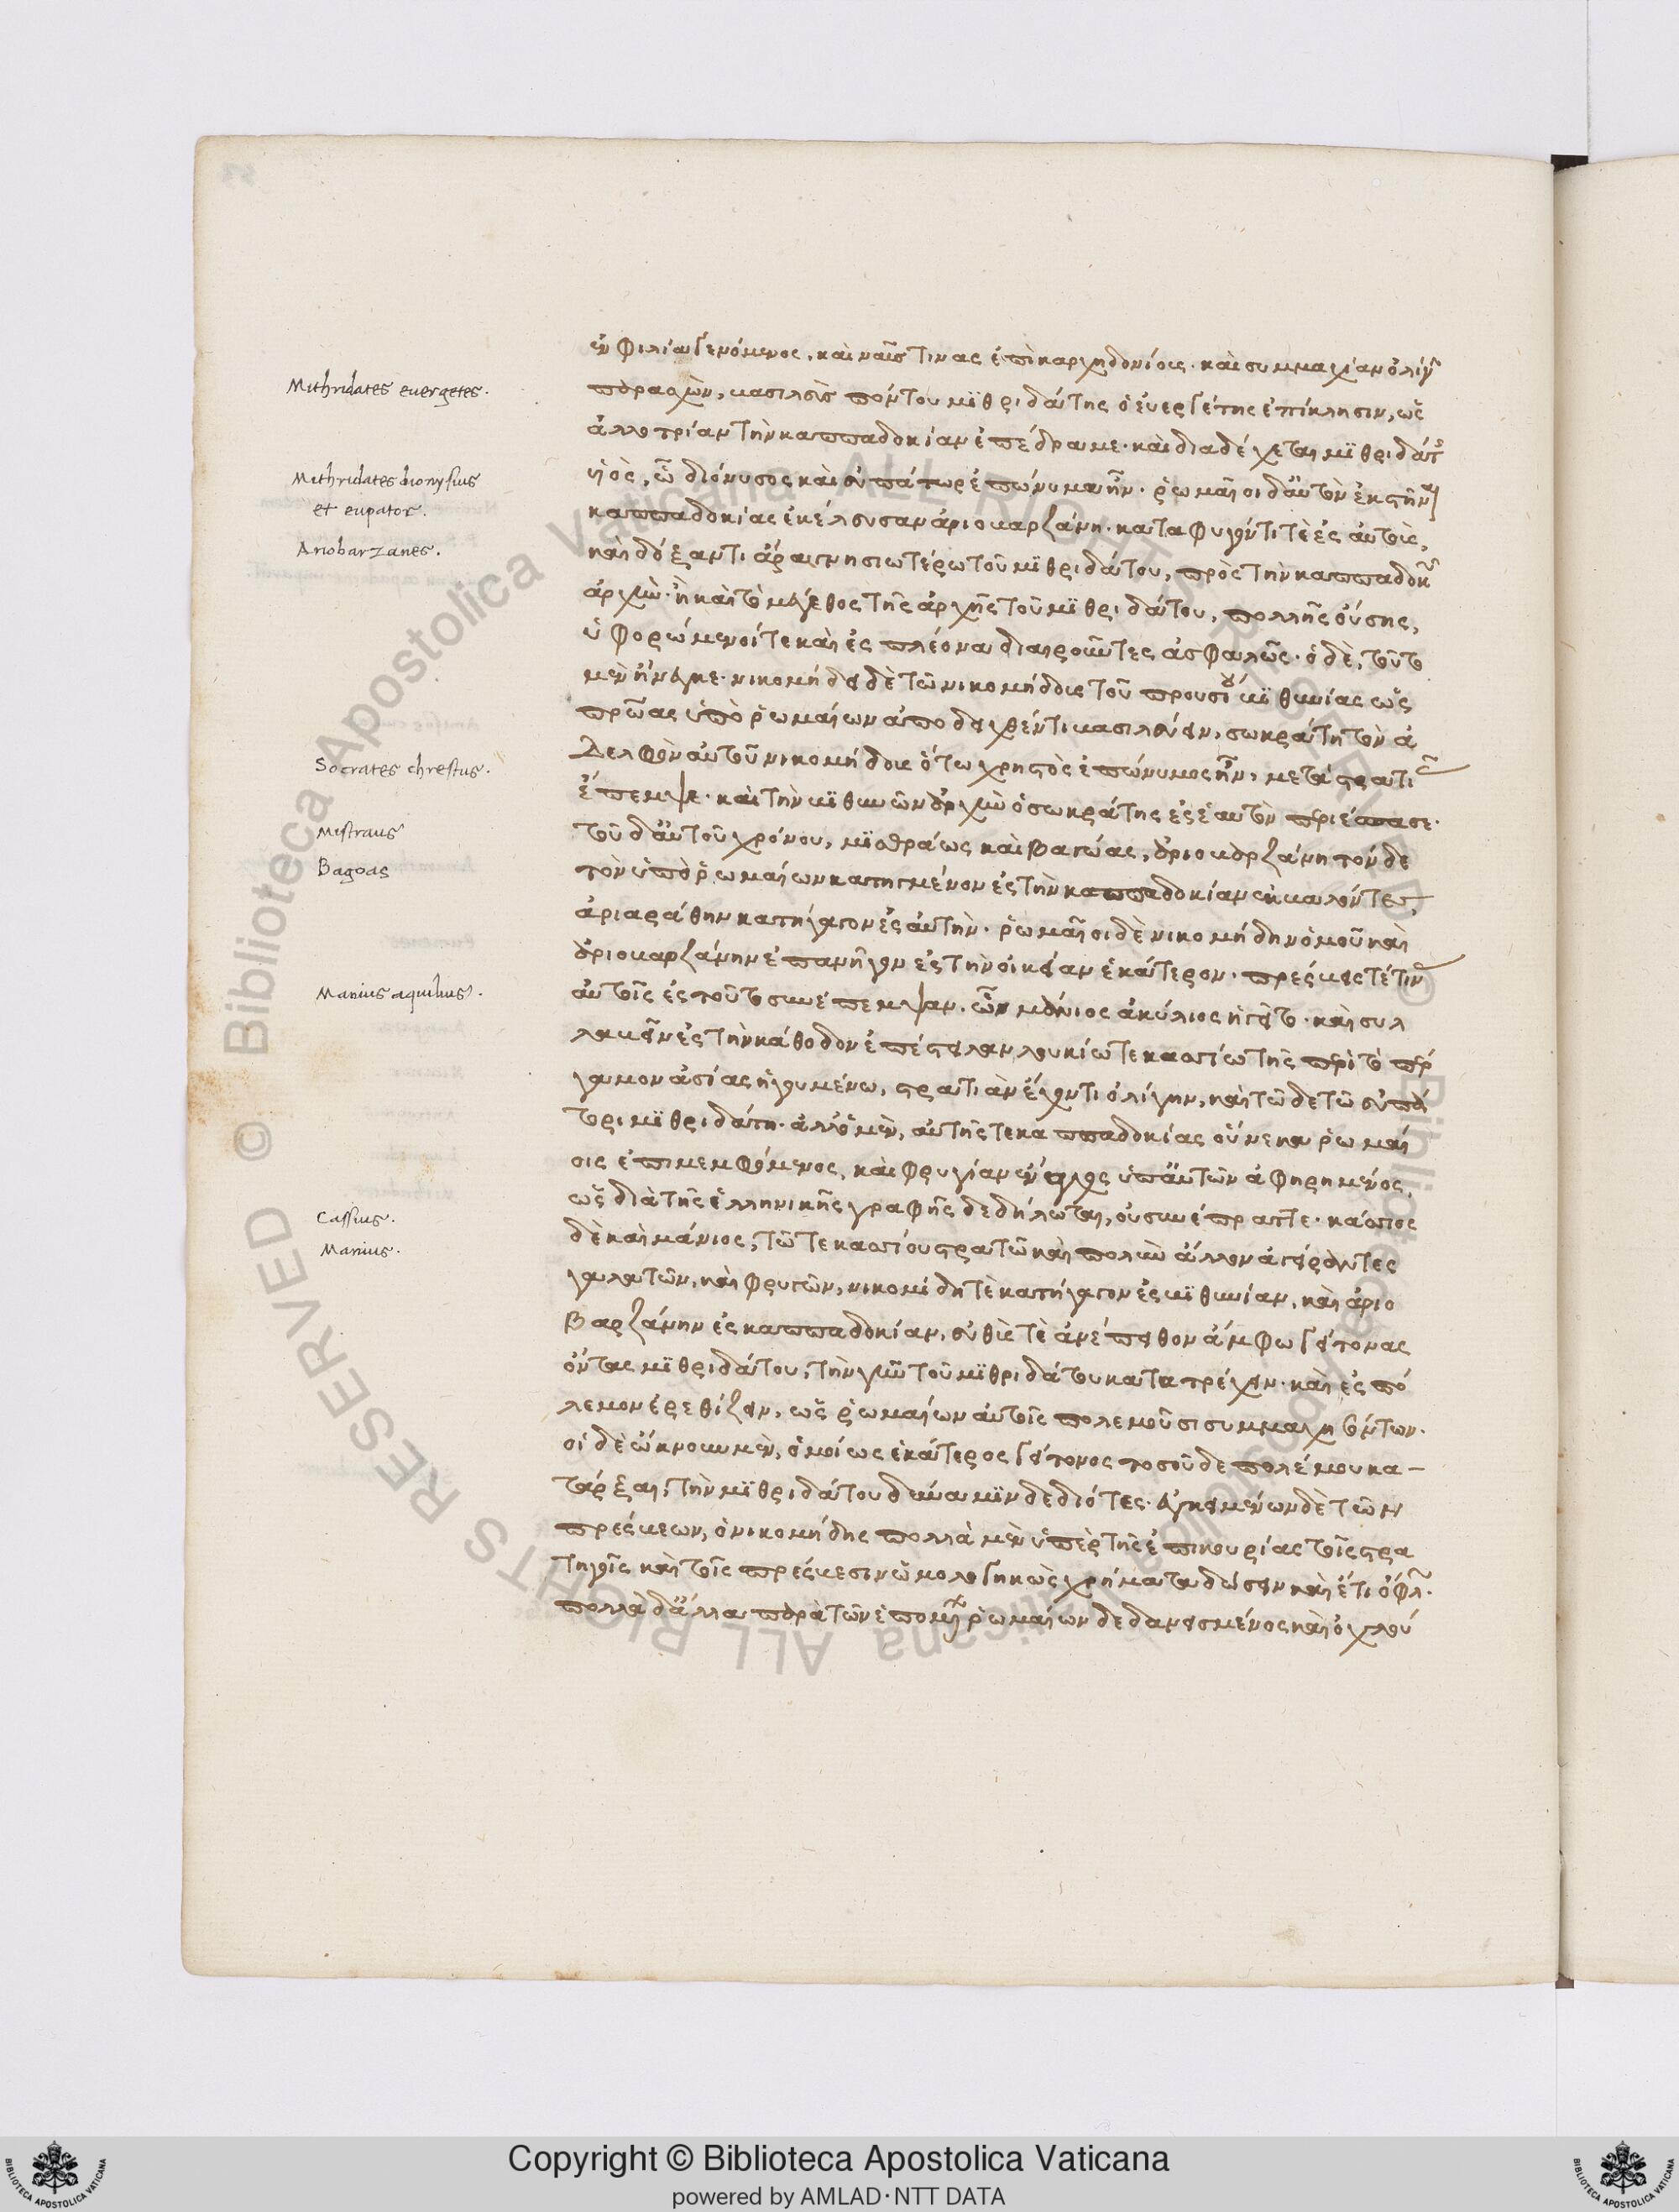 ἐν φιλίᾳ γενόμενος, καὶ ναῦς τινας ἐπὶ καρχηδονίοις. καὶ συμμαχίαν ὀλίγην
Mithridates euergetes.
παρασχὼν, βασιλεὺς πόντου μϊθριδάτης ὁ ἐυεργέτης ἐπίκλησιν, ὡς
ἀλλοτρίαν τὴν καππαδοκίαν ἐπέδραμε. καὶ διαδέχεται μϊθριδάτης
Mithridates dionysius
et eupator.
υἱὸς, ὧ διόνυσος καὶ εὐπάτωρ ἐπώνυμα ἦν. ῥωμαῖοι δ' ἀυτὸν ἐκστῆναι
Ariobarzanes.
καππαδοκίας ἐκέλευσαν ἀριοβαρζάνῃ. καταφυγόντι τὲ ἐς ἀυτοὺς,
καὶ δόξαντι ἄρα γνησιωτέρω τοῦ μϊθριδάτου, πρὸς τὴν καππαδοκῶν
ἀρχὴν. ἢ καὶ τὸ μέγεθος τῆς ἀρχῆς τοῦ μϊθριδάτου, πολλῆς ὀύσης,
ὑφορώμενοί τε καὶ ἐς πλέονα διαιροῦντες ἀσφαλῶς. ὁ δὲ, τοῦτο
μὲν ἤνεγκε. νικομήδει δὲ τῶ νικομήδους τοῦ προυσίου βϊθυνίας ὡς
πρώας ὑπὸ ῥωμαίων ἀποδειχθέντι βασιλεύειν, σωκράτη τὸν ἀ
Socrates chrestus.
δελφὸν ἀυτοῦ νικομήδους ὅτω χρηστὸς ἐπώνυμος ἦν, μετὰ στρατιᾶς
ἔπεμψε. καὶ τὴν βϊθυνῶν ἀρχὴν ὁ σωκράτης ἐς ἑαυτὸν περιέσπασε.
Mistraus
τοῦ δ' ἀυτοῦ χρόνου, μϊθραάς καὶ βαγώας, ἀριοβαρζάνη τόνδε
Bagoas
τὸν ὑπὸ ῥωμαίων κατηγμένον ἐς τὴν καππαδοκίαν ἐκβαλόντες,
ἀριαράθην κατήγαγον ἐς ἀυτὴν. ῥωμαῖοι δὲ νικομήδην ὁμοῦ καὶ
ἀριοβαρζάνην ἐπανῆγον ἐς τὴν οἰκείαν ἑκάτερον. πρέσβεις τέ τινας
Manius aquilius.
ἀυτοῖς ἐς τοῦτο συνέπεμψαν. ὧν μάνιος ἀκύλιος ἡγεῖτο. καὶ συλ
λαβεῖν ἐς τὴν κάθοδον ἐπέστειλαν λουκίω τε κασσίω τῆς περὶ τὸ πέρ
γαμον ἀσίας ἡγουμένω, στρατιὰν ἔχοντι ὀλίγην, καὶ τῶδε τῶ ἐυπά
τορι μϊθριδάτη. ἀλλ' ὁ μὲν, ἀυτῆς τε καππαδοκίας οὕνεκα ῥωμαί
οις ἐπιμεμφόμενος, καὶ φρυγίαν ἔναγχος ὑπ' ἀυτῶν ἀφηρημένος,
ὡς διὰ τῆς ἑλληνικῆς γραφῆς δεδήλωται, οὐ συνέπραττε. κάσσιος
Cassius.
Manius.
δὲ καὶ μάνιος, τῶ τε κασσίου στρατῶ καὶ πολὺν ἄλλον ἀγείραντες
γαλατῶν, καὶ φρυγῶν, νικομήδη τὲ κατήγαγον ἐς βϊθυνίαν, καὶ ἀριο
βαρζάνην ἐς καππαδοκίαν, ἐυθύς τὲ ἀνέπειθον ἄμφω γείτονας
ὄντας μϊθριδάτου, τὴν γῆν τοῦ μϊθριδάτου κατατρέχειν. καὶ ἐς πό
λεμον ἐρεθίζειν, ὡς ῥωμαίων ἀυτοῖς πολεμοῦσι συμμαχησόντων.
οἱ δὲ ὤκνουν μὲν, ὁμοίως ἑκάτερος γείτονος τοσοῦδε πολέμου κα-
τάρξαι, τὴν μϊθριδάτου δύναμϊν δεδιότες. ἐγκειμένων δὲ τῶν
πρέσβεων, ὁ νικομήδης πολλὰ μὲν ὑπὲρ τῆς ἐπικουρίας τοῖς στρα
τηγοῖς καὶ τοῖς πρέσβεσιν ὡμολογηκὼς χρήματα δώσειν καὶ ἔτι ὀφείλων.
πολλὰ δ' ἄλλα παρὰ τῶν ἑπομένων ῥωμαίων δεδανεισμένος καὶ ὀχλού
Copyright © Biblioteca Apostolica Vaticana
powered by AMLAD·NTT DATA